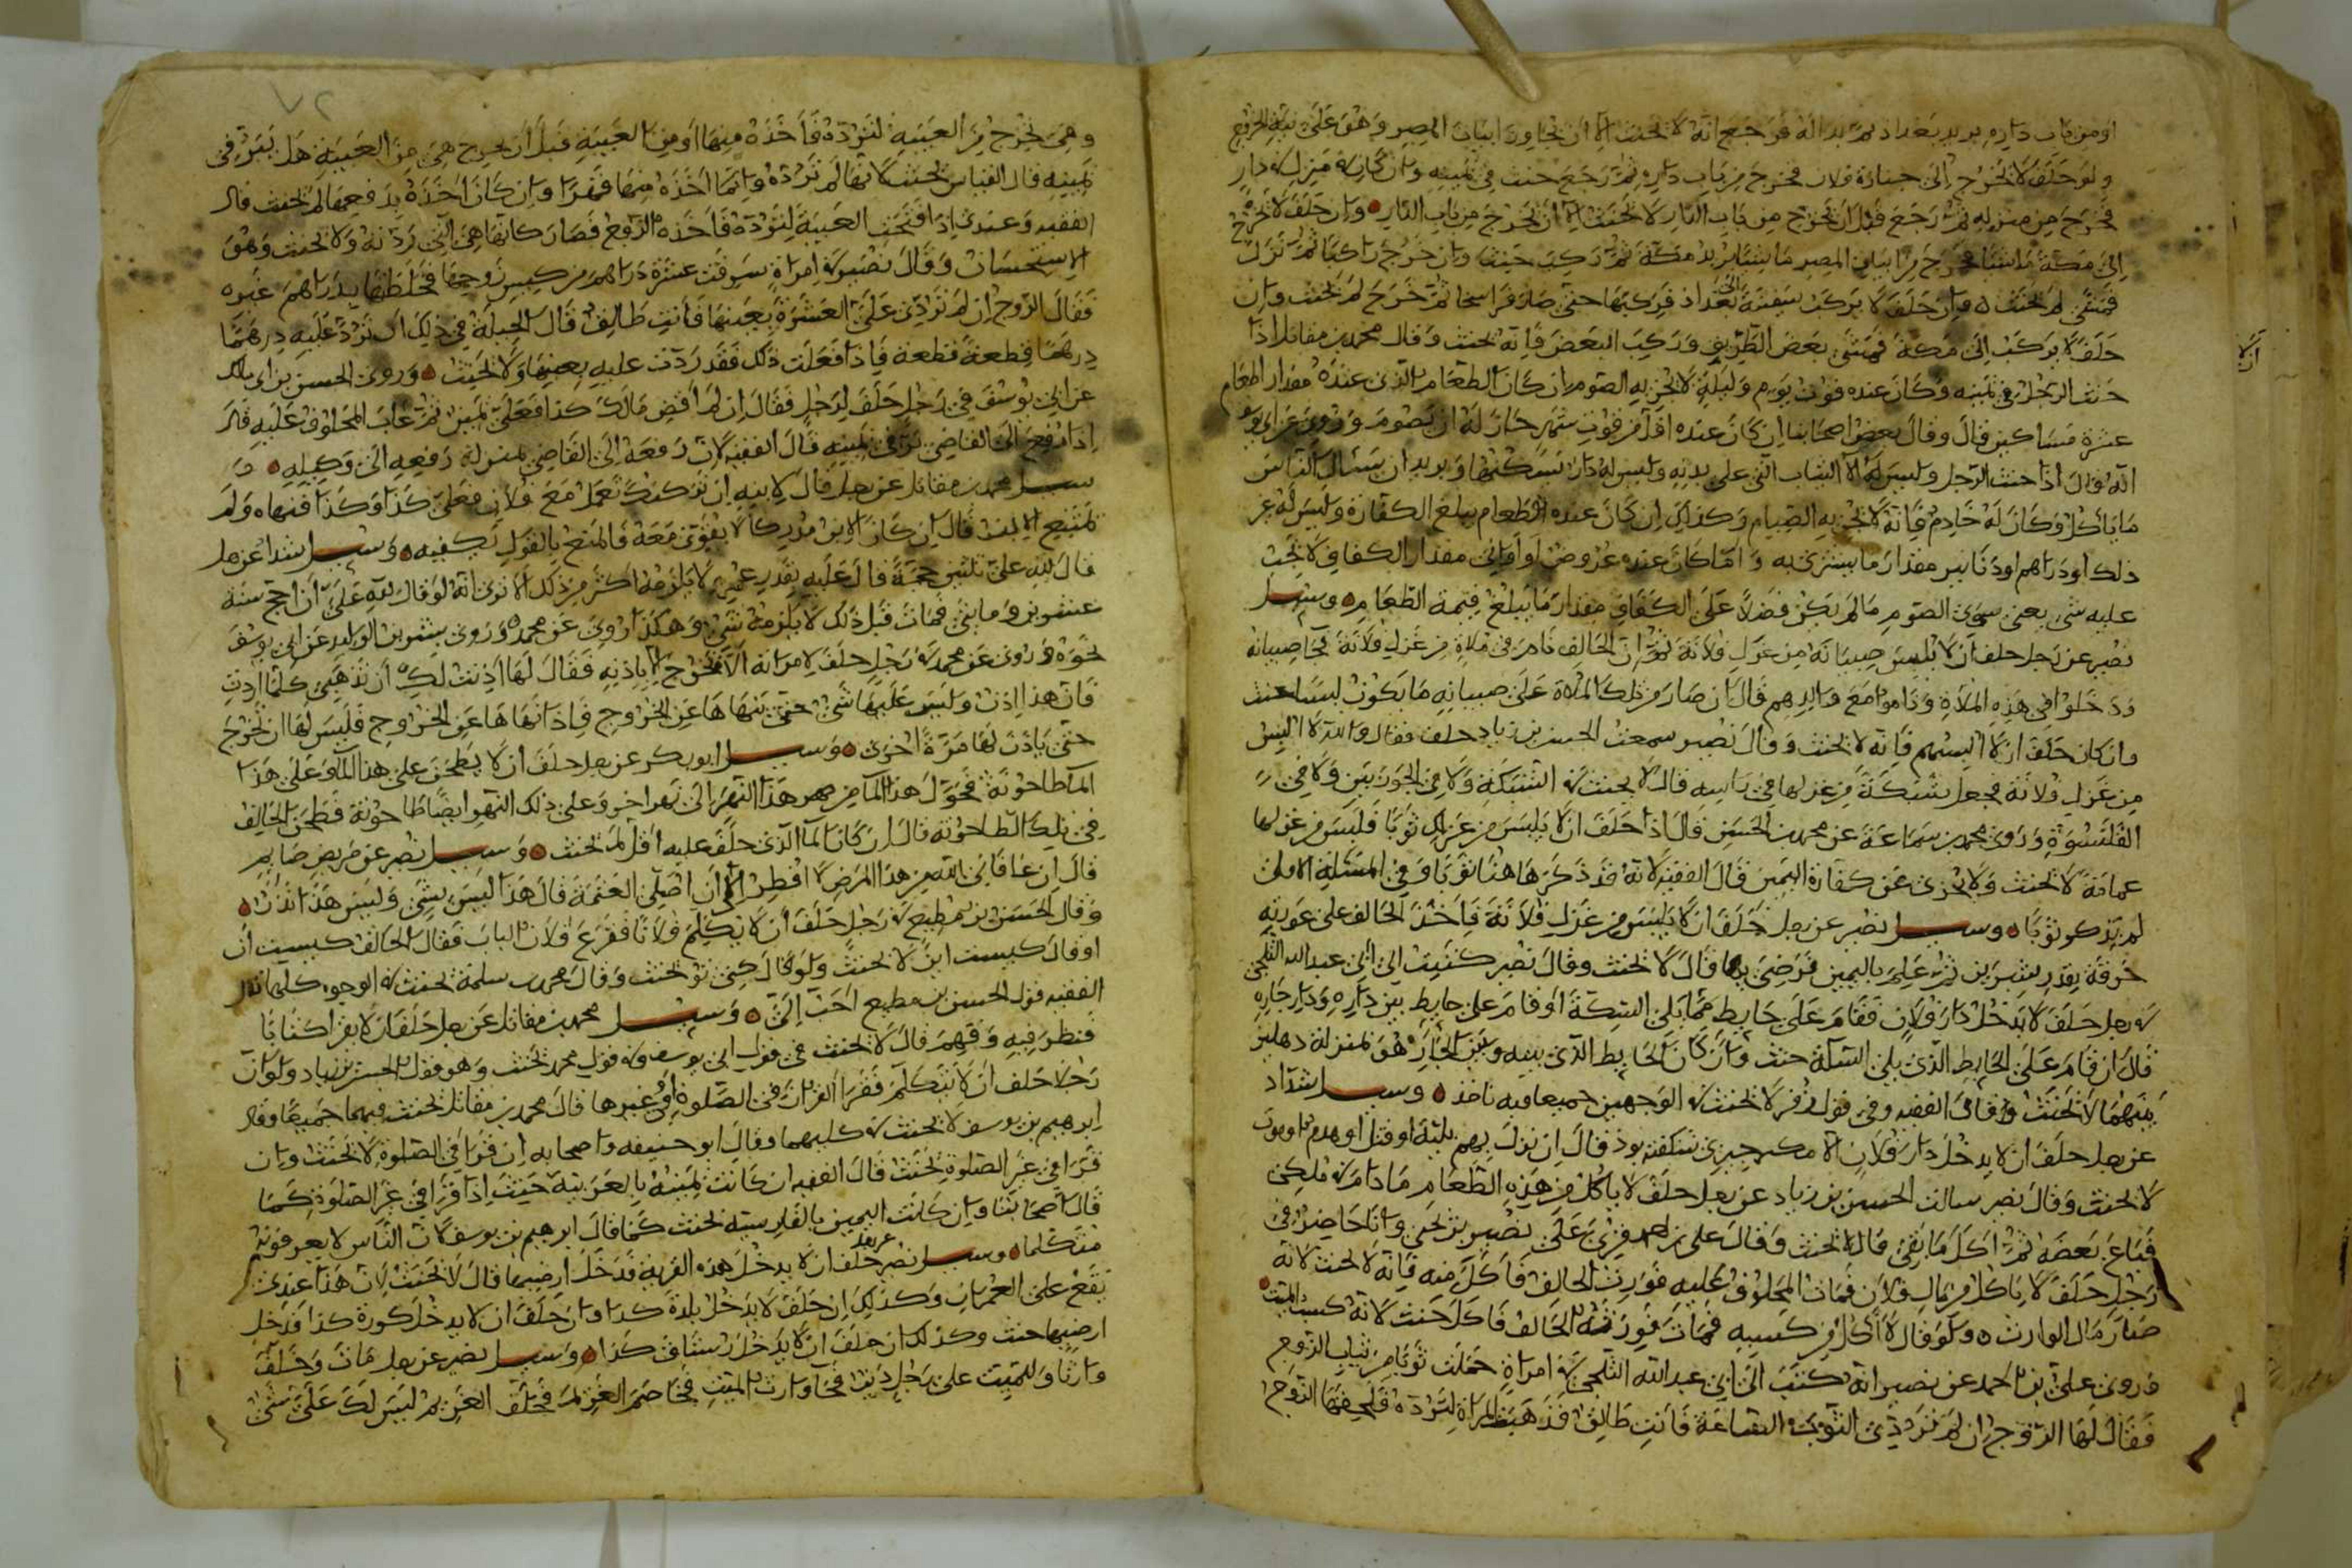 او من باب داره يريد بغداد ثم بدا له فرجع انه لا يحنث الا ان يجاوز ابيات المصر وهو على نية الخروج
ولو حلف لا يخرج الى جنازة فلان فخرج من باب داره ثم رجع حنث في يمينه وان كان في منزل من دار
فخرج من منزله ثم رجع قبل ان يخرج من باب الدار لا يحنث الا ان يخرج من باب الدار وان حلف لا يخرج
الى مكة ماشيا فخرج من ابيات المصر ماشيا يريد مكة ثم ركب حنث وان خرج راكبا ثم نزل
فمشى لم يحنث وان حلف لا يركب سفينة الى بغداد فركبها حتى صار فراسخا ثم خرج لم يحنث وان
حلف لا يركب الى مكة فمشى بعض الطريق وركب البعض فانه يحنث وقال محمد بن مقاتل اذا
حنث الرجل في يمينه وكان عنده قوت يوم وليلة لا يجزيه الصوم ان كان الطعام الذي عنده مقدار اطعام
عشرة مساكين قال وقال بعض اصحابنا ان كان عنده اقل من قوت شهر جاز له ان يصوم وروي عن ابي
انه قال اذا حنث الرجل وليس له الا الثياب التي على بدنه وليس له دار يسكنها ويريد ان يسأل الناس
ما يأكل وكان له خادم فانه لا يجزيه الصيام وكذلك ان كان عنده الطعام يبلغ الكفارة وليس له غير
ذلك او دراهم او دنانير مقدار ما يشتري به واما كان عنده عروض او اواني مقدار الكفاف لا يجب
عليه شي يعني سوى الصوم ما لم يكن فضلا على الكفاف مقدار ما يبلغ قيمة الطعام وسئل
نصير عن رجل حلف ان لا يلبس صبيانه من غزل فلانة ثم ان الحالف نام في ملاة من غزل فلانة فجا صبيانه
ودخلوا في هذه الملاة وناموا مع والدهم قال ان صار من ذلك الملاة على صبيانه ما يكون لبسا حنث
وان كان حلف ان لا البسهم فانه لا يحنث وقال نصير سمعت الحسن بن زياد حلف فقال والله لا البس
من غزل فلانة فجعل شبكة من غزلها في راسه قال لا يحنث في الشبكة ولا في الجوربين ولا في
القلنسوة وروى محمد بن سماعة عن محمد بن الحسن قال اذا حلف ان لا يلبس من غزلك ثوبا فلبس من غزلها
عمامة لا يحنث ولا يجزى عن كفارة اليمين قال الفقيه لانه قد ذكر هاهنا ثوبا وفي المسئلة الاولى
لم يذكر ثوبا وسئل نصير عن رجل حلف ان لا يلبس من غزل فلانة فاخذ الحالف على عورته
خرقة بقدر شبرين ثم علم باليمين فرضي بها قال لا يحنث وقال نصير كتبت الى ابي عبد الله الثلجي
في رجل حلف لا يدخل دار فلان فقام على حايط مما يلي السكة او قام على حايط بين داره ودار جاره
قال ان قام على الحايط الذي يلي السكة حنث وان كان الحايط الذي بينه وبين الجار هو بمنزلة دهليز
بينهما لا يحنث وقال الفقيه وفي قول زفر لا يحنث في الوجهين جميعا وبه ناخذ وسئل شداد
عن رجل حلف ان لا يدخل دار فلان الا مكر جيزى شكفته بوذ قال ان نزل بهم بلية او قتل او هدم او موت
لا يحنث وقال نصير سالت الحسن بن زياد عن رجل حلف لا ياكل من هذه الطعام ما دام في ملكي
فباع بعضه ثم اكل ما بقي قال لا يحنث وقال على نصير بن يحيى وانا حاضر في
رجل حلف لا ياكل من مال فلان فمات المحلوف عليه فورث الحالف فاكل منه فانه لا يحنث لانه
صار مال الوارث ولو قال لا اكل من كسبه فمات فورثه الحالف فاكل حنث لانه كسب الميت
وروى علي بن احمد عن نصير انه كتب الى ابي عبد الله الثلجي في امراة حملت ثوبا من ثياب الزوج
فقال لها الزوج ان لم تردي الثوب الساعة فانت طالق فذهبت المراة لترده فلحقها الزوج
ان لا
٧٢
وهي تخرج من العيبة لترده فاخذه منها او من العيبة قبل ان تخرج هي من العيبة هل يبر في
يمينه قال القياس يحنث لانها لم ترده وانما اخذه منها قهرا وان كان اخذه بدفعها لم يحنث قال
الفقيه وعندي اذا فتحت العيبة لترده فاخذه الزوج فصار كانها هي التي ردته ولا يحنث وهو
الاستحسان وقال نصير في امراة سرقت عشرة دراهم من كيس زوجها فخلطتها بدراهم غيره
فقال الزوج ان لم تردي علي العشرة بعينها فانت طالق قال الحيلة في ذلك ان ترد عليه درهما
درهما قطعة قطعة فاذا فعلت ذلك فقد ردت عليه بعينها ولا يحنث وروى الحسن بن ابي مالك
عن ابي يوسف في رجل حلف لرجل فقال ان لم اقض مالك كذا فعلي يمين ثم غاب المحلوف عليه قال
اذا رفع الى القاضي بر في يمينه قال الفقيه لان دفعه الى القاضي بمنزلة دفعه الى وكيله
سئل محمد بن مقاتل عن رجل قال لابنه ان تركتك تعمل مع فلان فعلي كذا وكذا فنهاه ولم
يمتنع الابن قال ان كان الابن مدركا لا يقوى معه فالمنع بالقول يكفيه وسئل شداد عن رجل
قال لله علي ثلثين حجة قال عليه بقدر عمره لا يلزمه اكثر من ذلك الا ترى انه لو قال لله علي ان احج سنة
عشرين وما يتي فمات قبل ذلك لا يلزمه شي وهكذا روي عن محمد وروى بشر بن الوليد عن ابي يوسف
نحوه وروى عن محمد في رجل حلف لامراته الا تخرج الا باذنه فقال لها اذنت لك ان تذهبي كلما اردت
قال هذا اذن وليس عليها شي حتى ينهاها عن الخروج فاذا نهاها عن الخروج فليس لها ان تخرج
حتى ياذن لها مرة اخرى وسئل ابو بكر عن رجل حلف ان لا يطحن على هذا الماء وعلى هذا
الماء طاحونة فحول هذا الماء من هذا النهر الى نهر اخر وعلى ذلك النهر ايضا طاحونة فطحن الحالف
في تلك الطاحونة قال ان كان الماء الذي حلف عليه اقل لم يحنث وسئل نصر عن مريض صايم
قال ان عافاني الله من هذا المرض لا افطر الى ان اصلي العتمة قال هذا ليس بشي وليس هذا نذر
وقال الحسن بن مطيع في رجل حلف ان لا يكلم فلانا فقرع فلان الباب فقال الحالف كيست ان
او قال كيست اين لا يحنث ولو قال كى تو يحنث وقال محمد بن سلمة يحنث في الوجوه كلها قال
الفقيه قول الحسن بن مطيع احب الي وسئل محمد بن مقاتل عن رجل حلف ان لا يقرا كتابا
فنظر فيه وفهم قال لا يحنث في قول ابي يوسف وفي قول محمد يحنث وهو قول الحسن بن زياد ولو ان
رجلا حلف ان لا يتكلم فقرا القران في الصلوة او غيرها قال محمد بن مقاتل يحنث فيهما جميعا وقال
ابرهيم بن يوسف لا يحنث في كليهما وقال ابو حنيفه واصحابه ان قرا في الصلوة لا يحنث وان
قرا في غير الصلوة يحنث قال الفقيه ان كانت يمينه بالعربية حنث اذا قرا في غير الصلوة كما
قال اصحابنا وان كانت اليمين بالفارسية لا يحنث كما قال ابرهيم بن يوسف لان الناس لا يعرفونه
متكلما وسئل نصر عن رجل حلف ان لا يدخل هذه القرية فدخل ارضيها قال لا يحنث لان هذا عندي
يقع على العمران وكذلك ان حلف لا يدخل بلدة كذا وان حلف ان لا يدخل كورة كذا فدخل
ارضيها حنث وكذلك ان حلف ان لا يدخل رستاق كذا وسئل نصير عن رجل مات وخلف
وارثا وللميت على رجل دين فجا وارث الميت فخاصم الغريم فحلف الغريم ليس لك علي شي